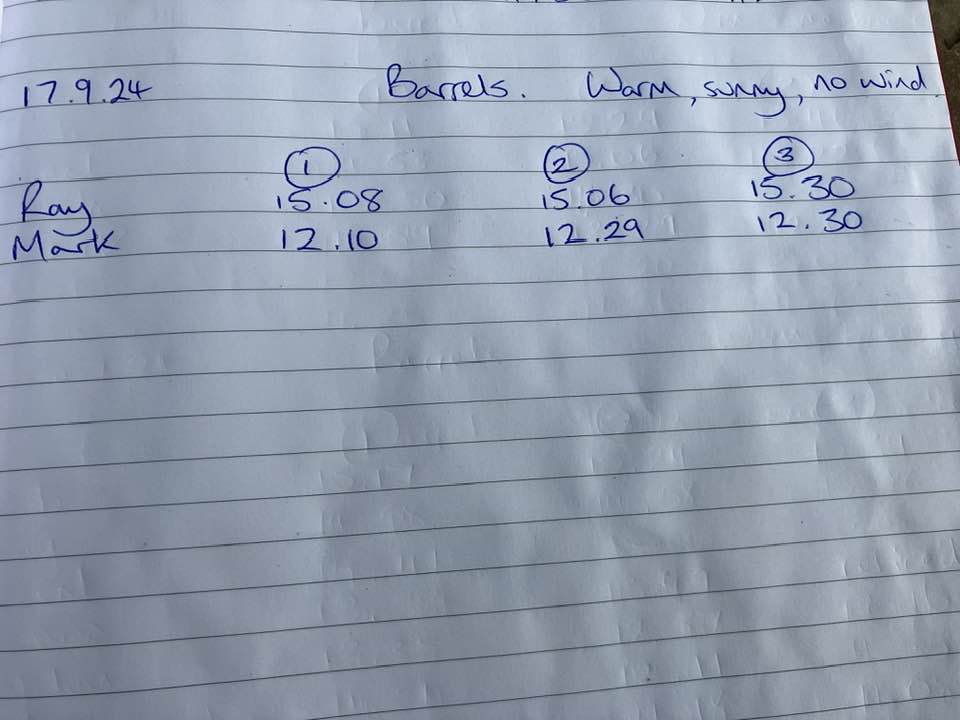 17.9.24 Barrels. Warm, sunny, no wind.
1 2 3
Ray 15.08 15.06 15.30
Mark 12.10 12.29 12.30